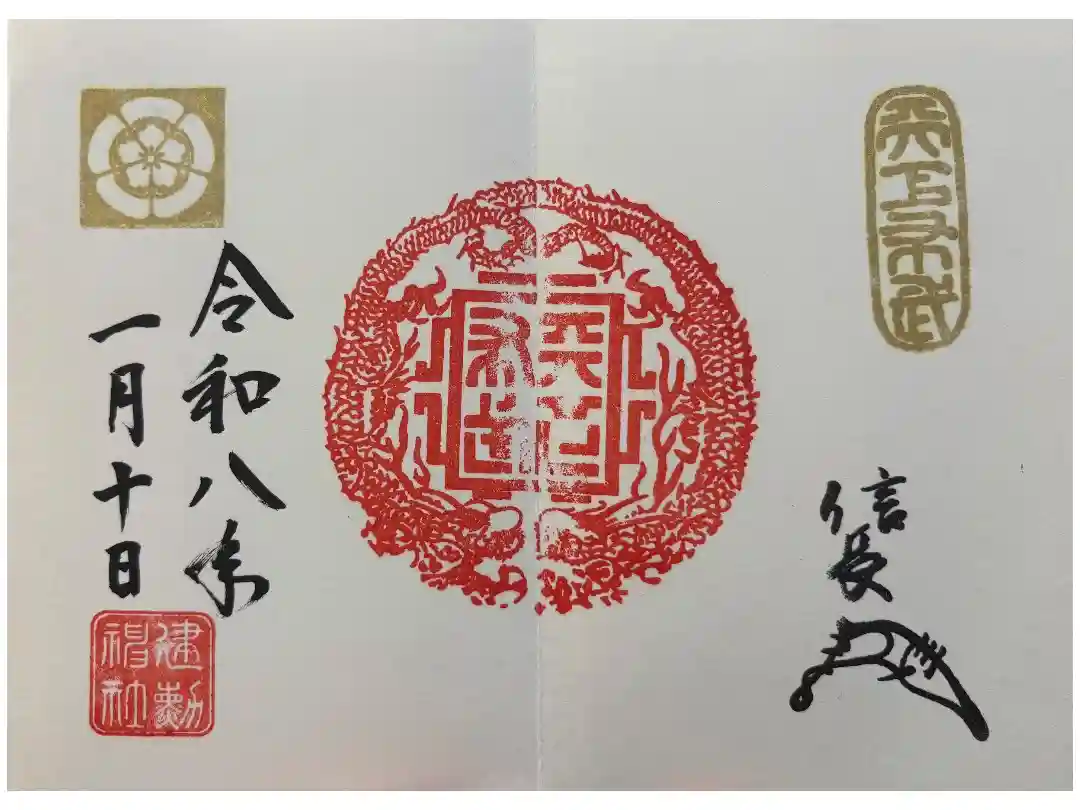 天下布武
信長
天下布武
令和八年
一月十日
建勲
神社